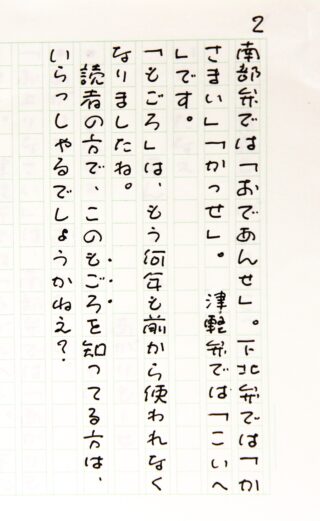 2
南部弁では「おであんせ」。下北弁では「か
さまい」「かっせ」。　津軽弁では「こいへ
」です。
「もごろ」は、もう何年も前から使われなく
なりましたね。
　読者の方で、このもごろを知ってる方は、
いらっしゃるでしょうかねえ？